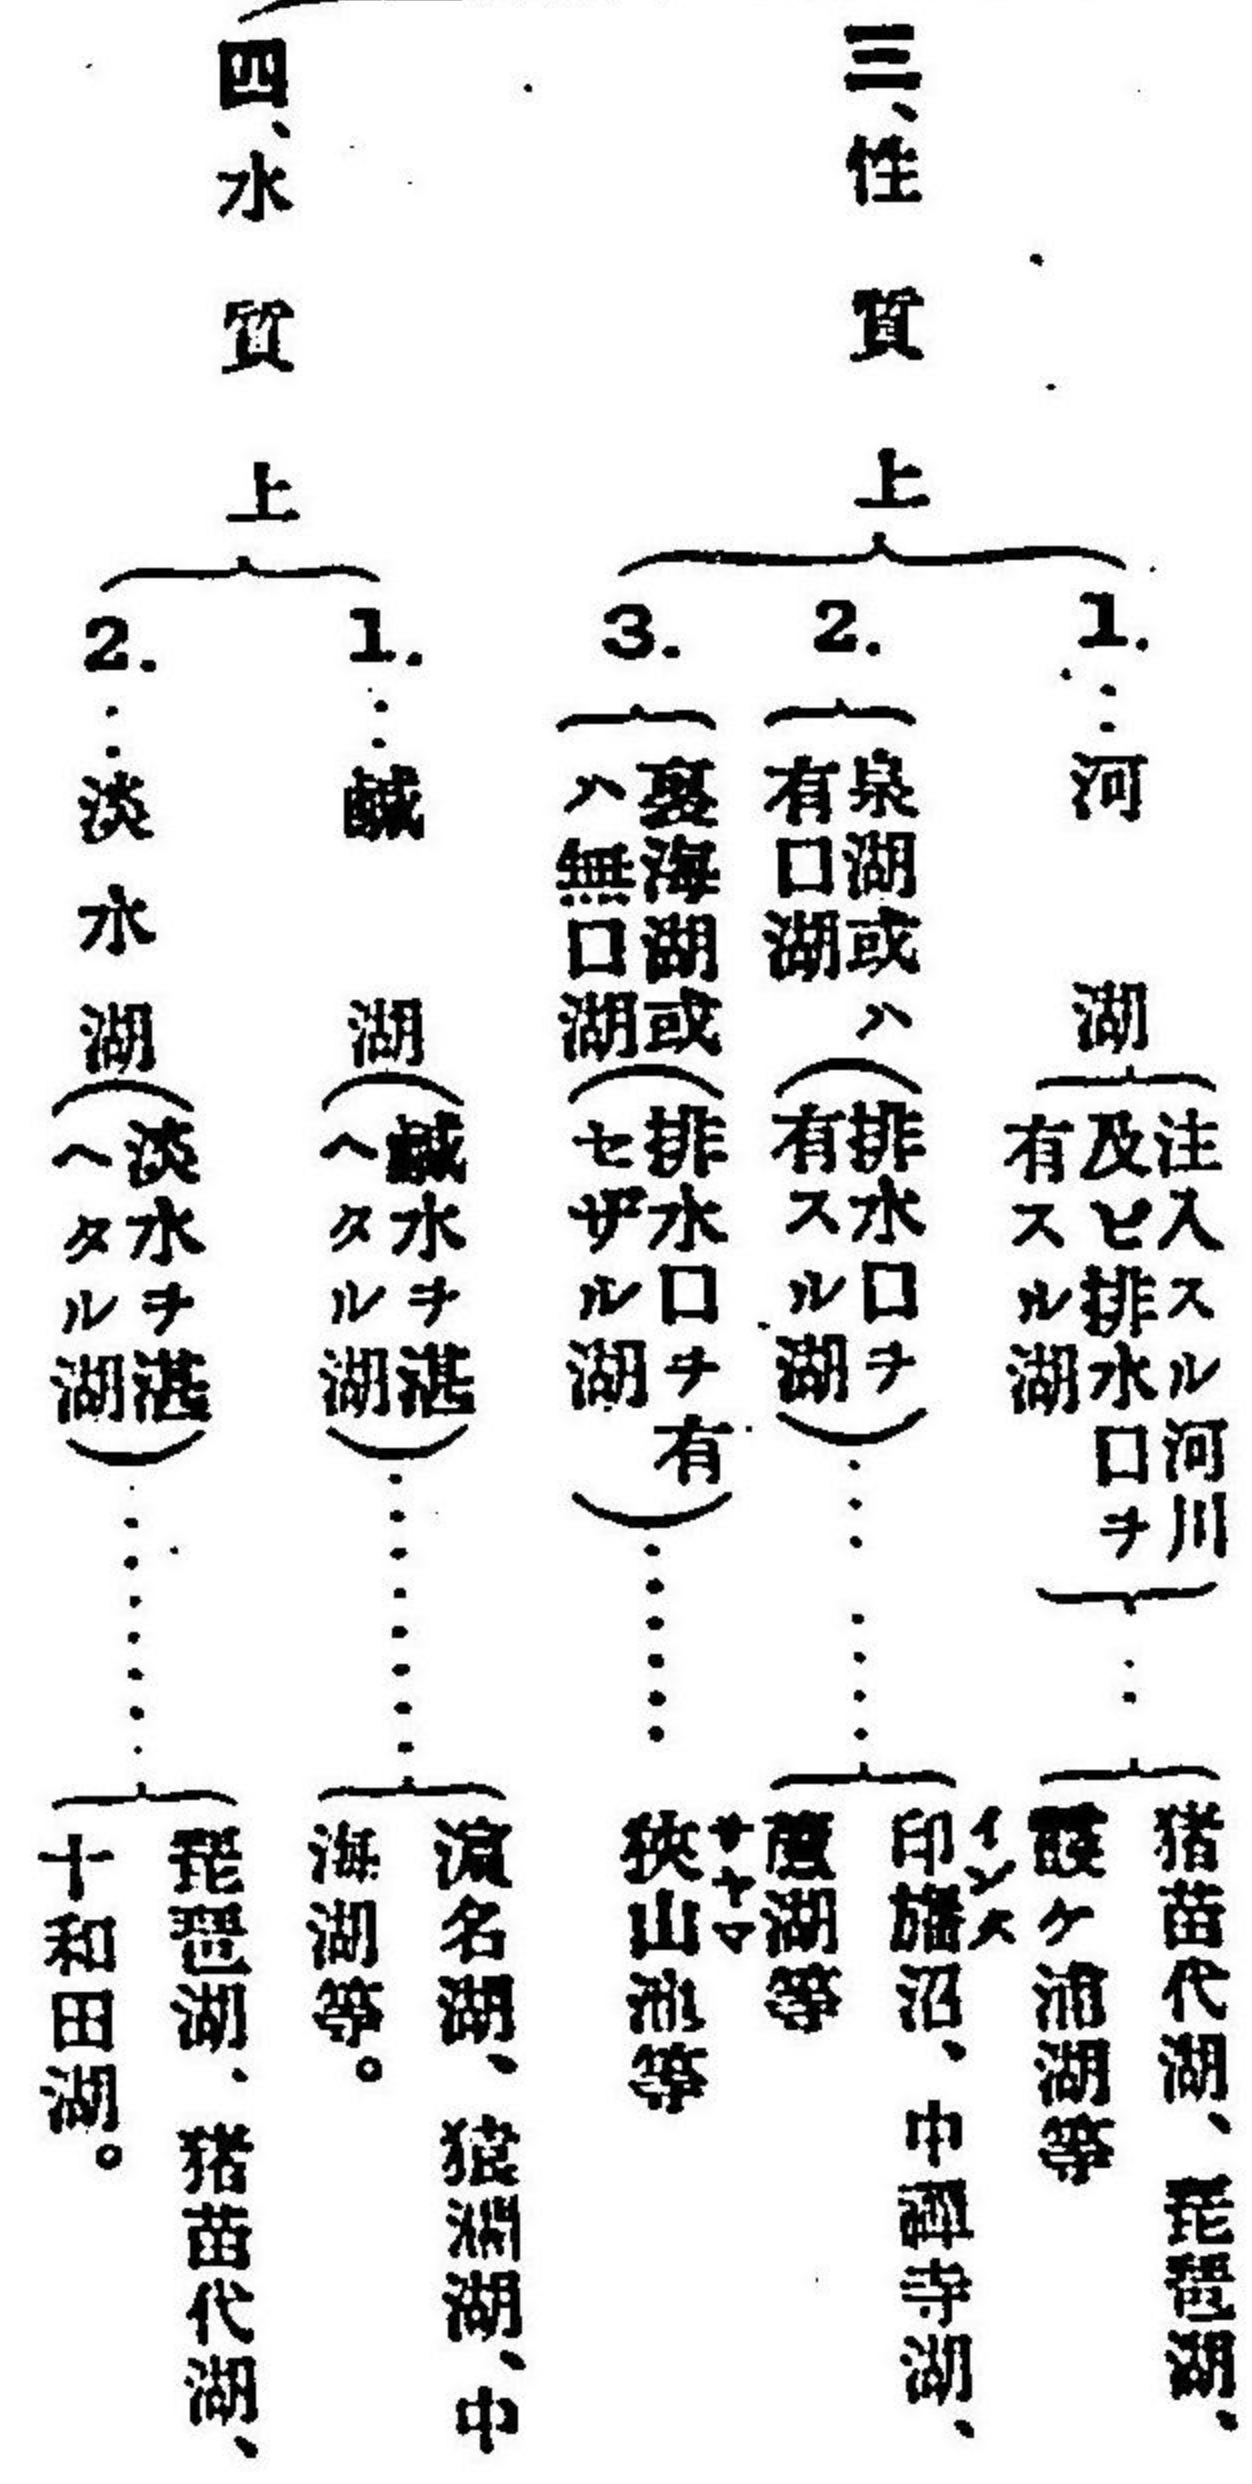 三、性質上
1.…河湖
注入スル河川
及ビ排水口ヲ
有スル湖
猪苗代湖、琵琶湖、
霞ケ浦湖等
2.
泉湖或ハ
有口湖
(排水口ヲ
有スル湖)
印旛沼、中禪寺湖、
インバ
湖等
3.
裏海湖或
ハ無口湖
(排水口ヲ有
セザル湖)
狹山池等
サヤマ
四、水質上
1.…鹹湖
(鹹水ヲ湛
ヘタル湖)
濱名湖、猿澗湖、中
海湖等。
2.…淡水湖
(淡水ヲ湛
ヘタル湖)
琵琶湖、猪苗代湖、
十和田湖。